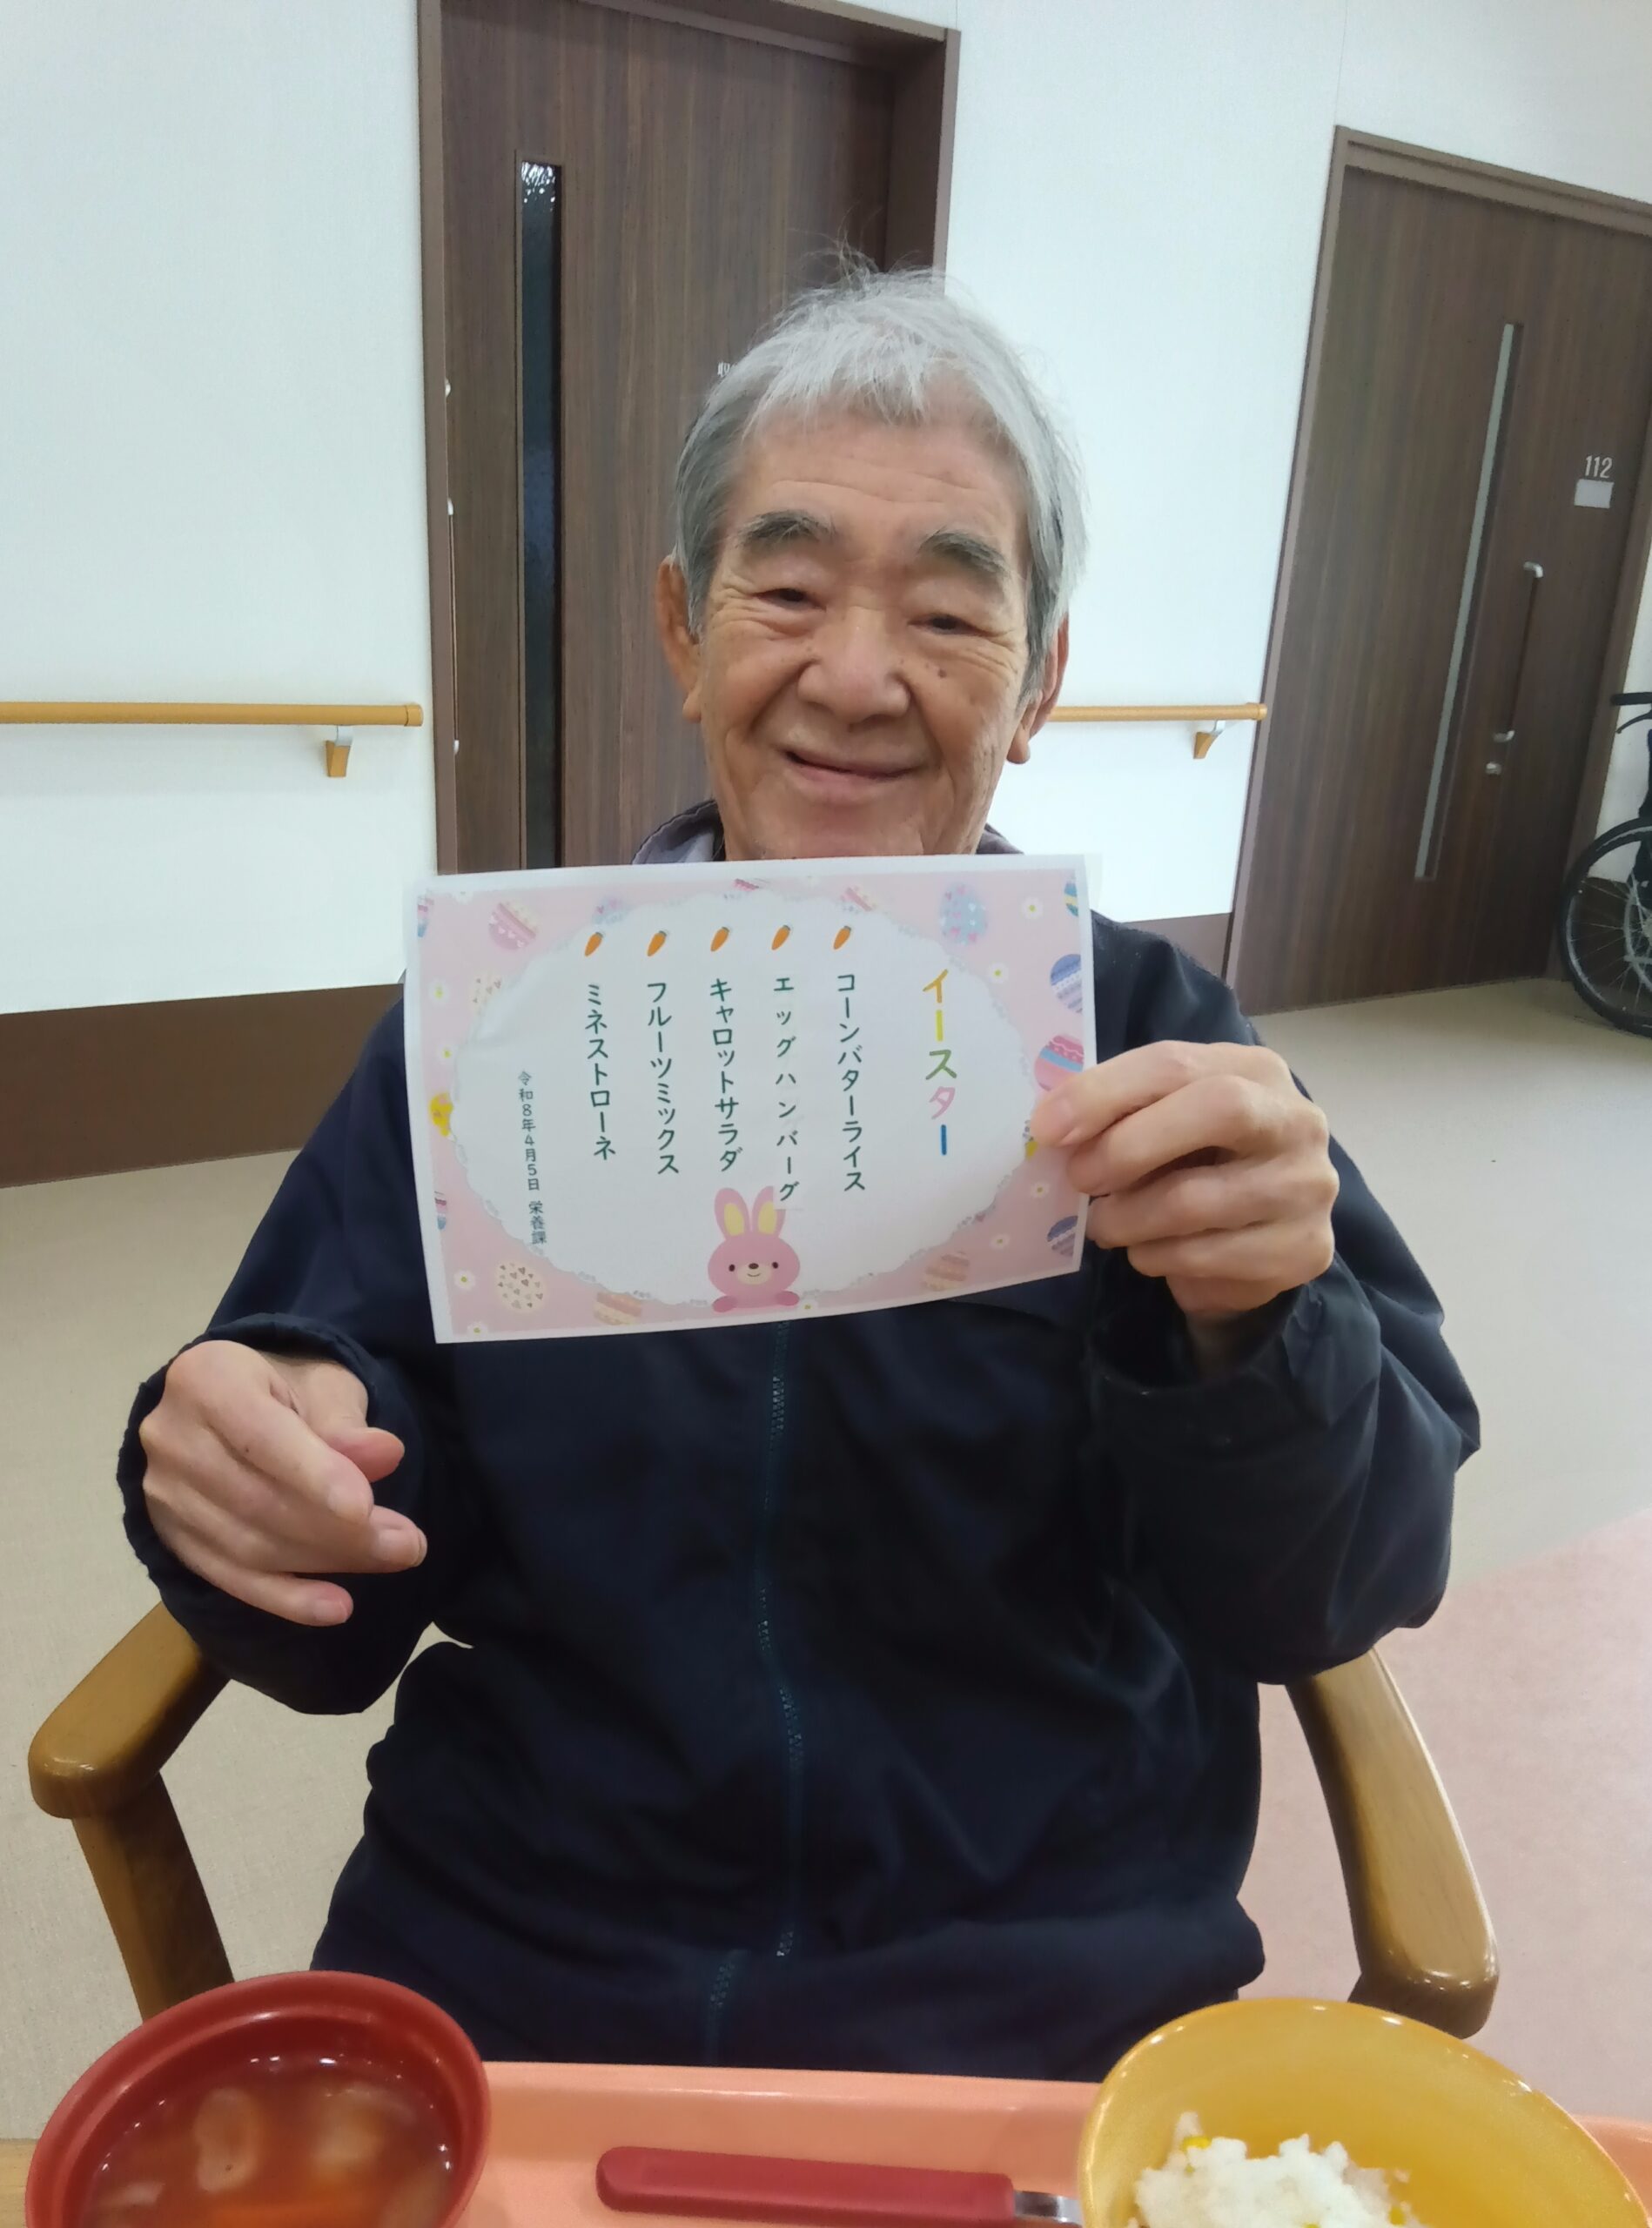 イースター
コーンバターライス
エッグハンバーグ
キャロットサラダ
フルーツミックス
ミネストローネ
令和8年4月5日 栄養課
112